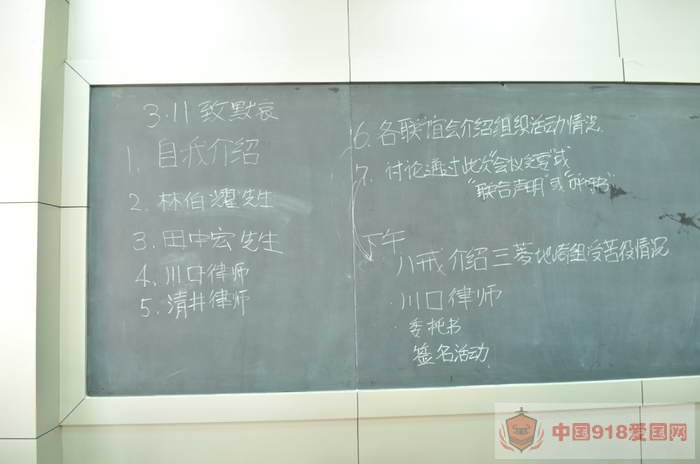 3.11 致默哀
1. 自我介绍
2. 林伯耀先生
3. 田中宏先生
4. 川口律师
5. 清井律师
6. 各联谊会介绍组织活动情况
7. 讨论通过此次"会议文言"或
"联合声明"或"呼吁书"
下午
介绍三菱地崎组受苦役情况
川口律师
· 委托书
签名活动
中国918爱国网